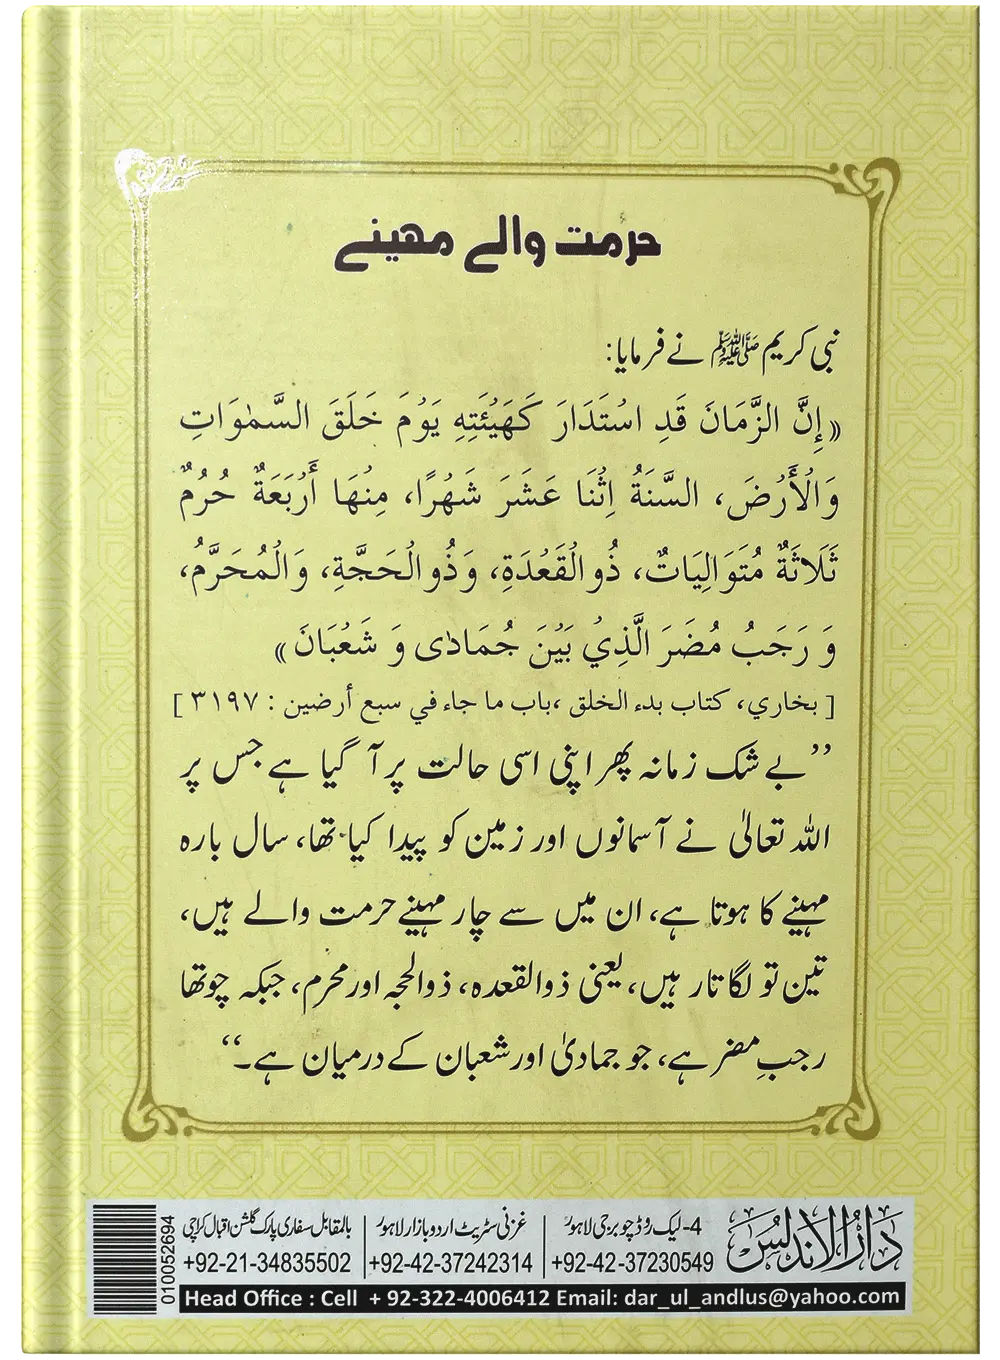 حرمت والے مہینے
نبی کریم ﷺ نے فرمایا:
«إِنَّ الزَّمَانَ قَدِ اسْتَدَارَ كَهَيْئَتِهِ يَوْمَ خَلَقَ السَّمٰوَاتِ
وَالْأَرْضَ، السَّنَةُ اثْنَا عَشَرَ شَهْرًا، مِنْهَا أَرْبَعَةٌ حُرُمٌ
ثَلَاثَةٌ مُتَوَالِيَاتٌ، ذُو الْقَعْدَةِ، وَذُو الْحَجَّةِ، وَالْمُحَرَّمُ،
وَ رَجَبُ مُضَرَ الَّذِيْ بَيْنَ جُمَادٰى وَ شَعْبَانَ»
[ بخاري، كتاب بدء الخلق ،باب ما جاء في سبع أرضين : ٣١٩٧ ]
’’بے شک زمانہ پھر اپنی اسی حالت پر آ گیا ہے جس پر
اللہ تعالیٰ نے آسمانوں اور زمین کو پیدا کیا تھا، سال بارہ
مہینے کا ہوتا ہے، ان میں سے چار مہینے حرمت والے ہیں،
تین تو لگاتار ہیں، یعنی ذوالقعدہ، ذوالحجہ اور محرم، جبکہ چوتھا
رجبِ مضر ہے، جو جمادیٰ اور شعبان کے درمیان ہے۔‘‘
دارالاندلس
4- لیک روڈ چوبرجی لاہور
+92-42-37230549
غزنی سٹریٹ اردو بازار لاہور
+92-42-37242314
بالمقابل سفاری پارک گلشن اقبال کراچی
+92-21-34835502
Head Office : Cell + 92-322-4006412 Email: dar_ul_andlus@yahoo.com
010052694